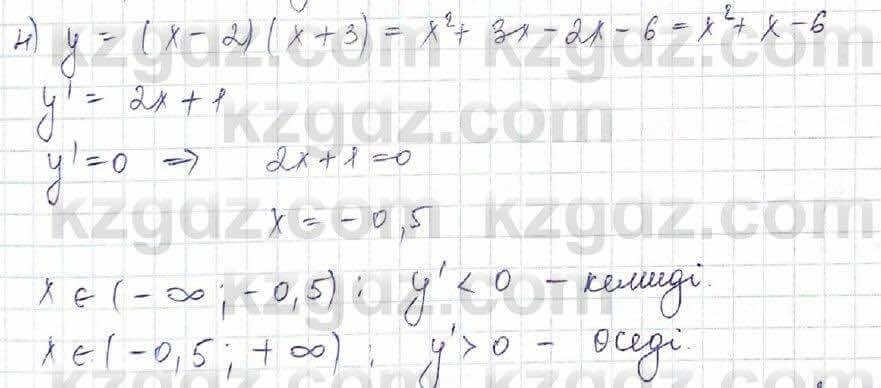 4) y = (x - 2)(x + 3) = x² + 3x - 2x - 6 = x² + x - 6
y' = 2x + 1
y' = 0 ⇒ 2x + 1 = 0
x = - 0,5
x ∈ (- ∞ ; - 0,5) ; y' < 0 - кемиді.
x ∈ (- 0,5 ; + ∞) ; y' > 0 - өседі.
kzgdz.com
kzgdz.com
kzgdz.com
kzgdz.com
kzgdz.com
kzgdz.com
kzgdz.com